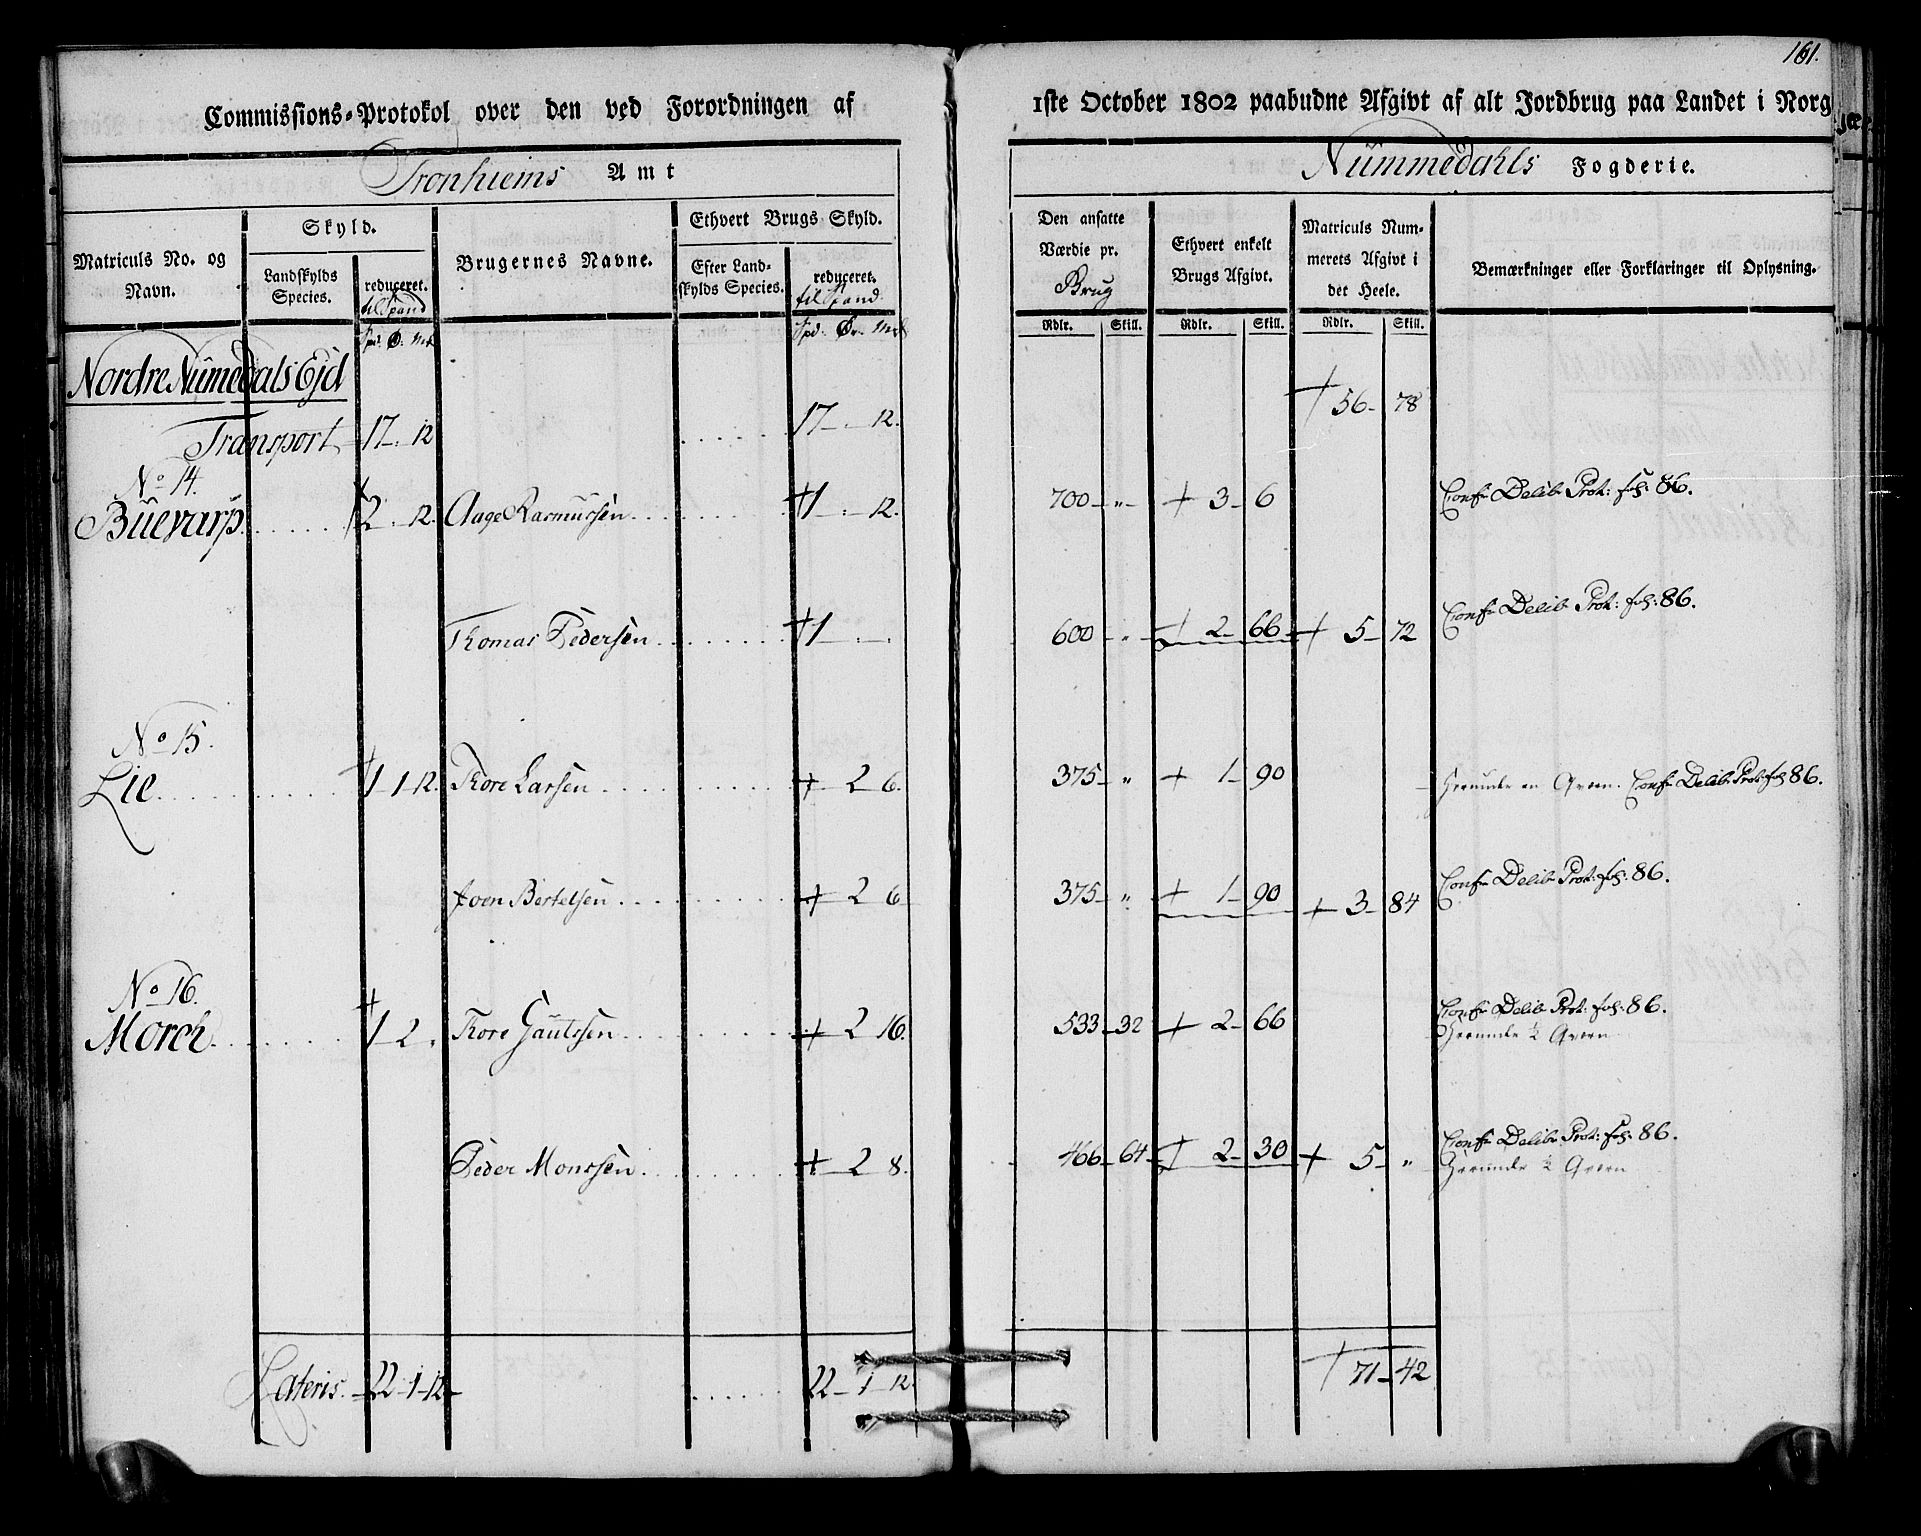 161.
Commissions-Protokol over den ved Forordningen af 1ste October 1802 paabudne Afgivt af alt Jordbrug paa Landet i Norg
Tronhiems Amt Nummedahls Fogderie.
Matriculs No. og Navn.
Skyld.
Landskylds Species.
reduceret. til Spand
Spd. Ø: Mk
Brugernes Navne.
Ethvert Brugs Skyld.
Efter Landskylds Species.
reduceret. til Spand.
Spd. Ør. Mk
Den ansatte Værdie pr. Brug
Rdlr. Skill.
Ethvert enkelt Brugs Afgivt.
Rdlr. Skill.
Matriculs Nummerets Afgivt i det Heele.
Rdlr. Skill.
Bemærkninger eller Forklaringer til Oplysning.
Nordre Numedals Ejd
Transport 17 - . 12 17 - . - 12. + 56 - 78
No 14.
Buevarp + 2 . 12. Aage Rasmussen + 1 - . - 12. 700 - " - + 3 - 6 Confr Delib Prot: fol: 86.
Thomas Pedersen + 1 - . - 600 - " - + 2 - 66 + 5 - 72 Confr Delib Prot: fol: 86.
No 15.
Lie + 1 - 1 - 12. Thore Larsen + 2 6. 375 - " + 1 - 90 Herunde en Qværn. Confr Delib Prot fol 86.
Joen Bertelsen + 2 6 375 - " - + 1 - 90 + 3 - 84 Confr Delib Prot: fol: 86.
No 16.
Morch + 1 2 . Thore Gautssen + 2 16. 533 - 32 + 2 - 66 Confr Delib Prot: fol: 86.
Herunde ½ Qværn
Peder Monssen + 2 8. 466 - 64 - + 2 - 30 + 5 - " Confr Delib Prot: fol: 86.
Herunde ½ Qværn
Lateris. 22 - 1 - 12 22 - 1 - 12. + 71 - 42